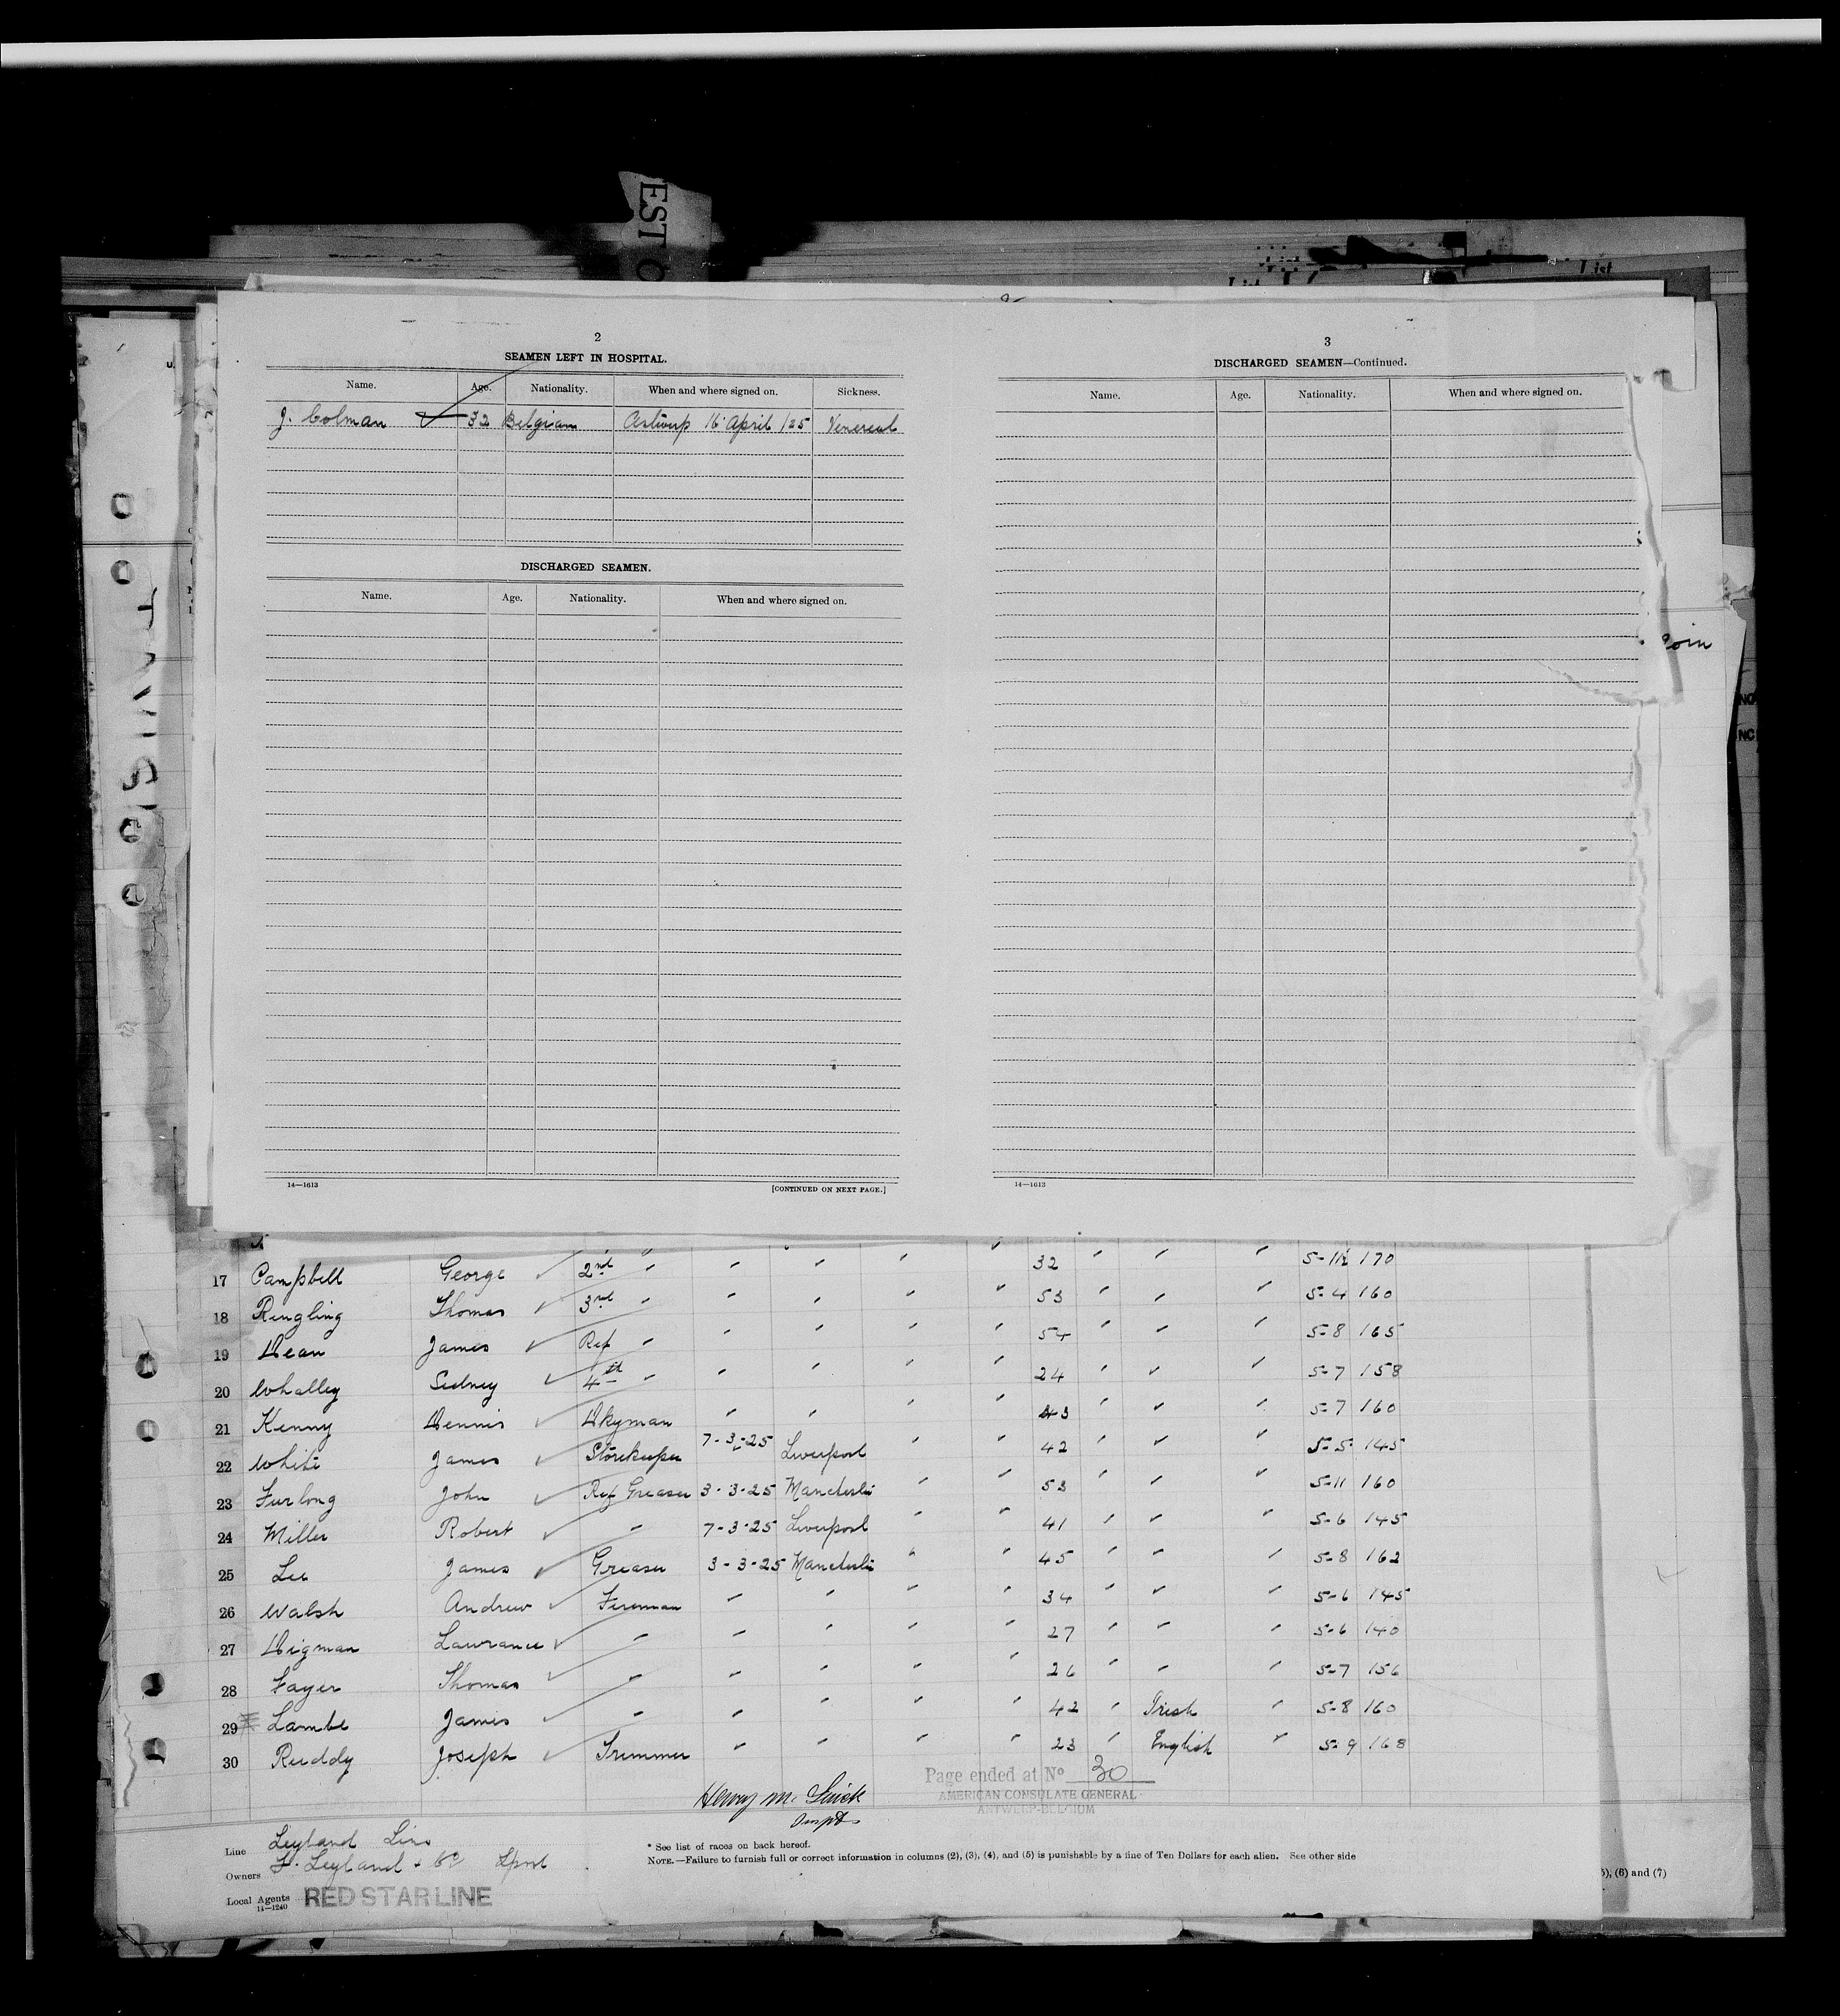 EST
List
List
2
SEAMEN LEFT IN HOSPITAL.
Name. Age. Nationality. When and where signed on. Sickness.
J. Colman ✓ 32 Belgian Astwerp 16 April /25 Venereal
DISCHARGED SEAMEN.
Name. Age. Nationality. When and where signed on.
14—1613 [CONTINUED ON NEXT PAGE.]
3
DISCHARGED SEAMEN—Continued.
Name. Age. Nationality. When and where signed on.
14—1613
17 Campbell George ✓ 2nd " " " " " 32 " " " 5-11½ 170
18 Ringling Thomas ✓ 3rd " " " " " 53 " " " 5-4 160
19 Dean James ✓ Ref " " " " " 54 " " " 5-8 165
20 Whalley Sidney ✓ 4th " " " " " 24 " " " 5-7 158
21 Kenny Dennis ✓ Dkyman " " " " 43 " " " 5-7 160
22 White James ✓ Storekeeper 7-3-25 Liverpool " " 42 " " " 5-5 145
23 Furlong John ✓ Ref Greaser 3-3-25 Manchester " " 53 " " " 5-11 160
24 Miller Robert ✓ " 7-3-25 Liverpool " " 41 " " " 5-6 145
25 Lee James ✓ Greaser 3-3-25 Manchester " " 45 " " " 5-8 162
26 Walsh Andrew ✓ Fireman " " " " 34 " " " 5-6 145
27 Digman Lawrance ✓ " " " " " 27 " " " 5-6 140
28 Fayer Thomas ✓ " " " " " 26 " " " 5-7 156
29 Lambe James ✓ " " " " " 42 " Irish " 5-8 160
30 Ruddy Joseph ✓ Trimmer " " " " 23 " English " 5-9 168
Page ended at No 30
AMERICAN CONSULATE GENERAL
ANTWERP-BELGIUM
Henry M.
Line Leyland Line
Owners F. Leyland & Co Lpool
Local Agents RED STAR LINE
14—1240
* See list of races on back hereof.
NOTE.—Failure to furnish full or correct information in columns (2), (3), (4), and (5) is punishable by a fine of Ten Dollars for each alien. See other side
(6) and (7)